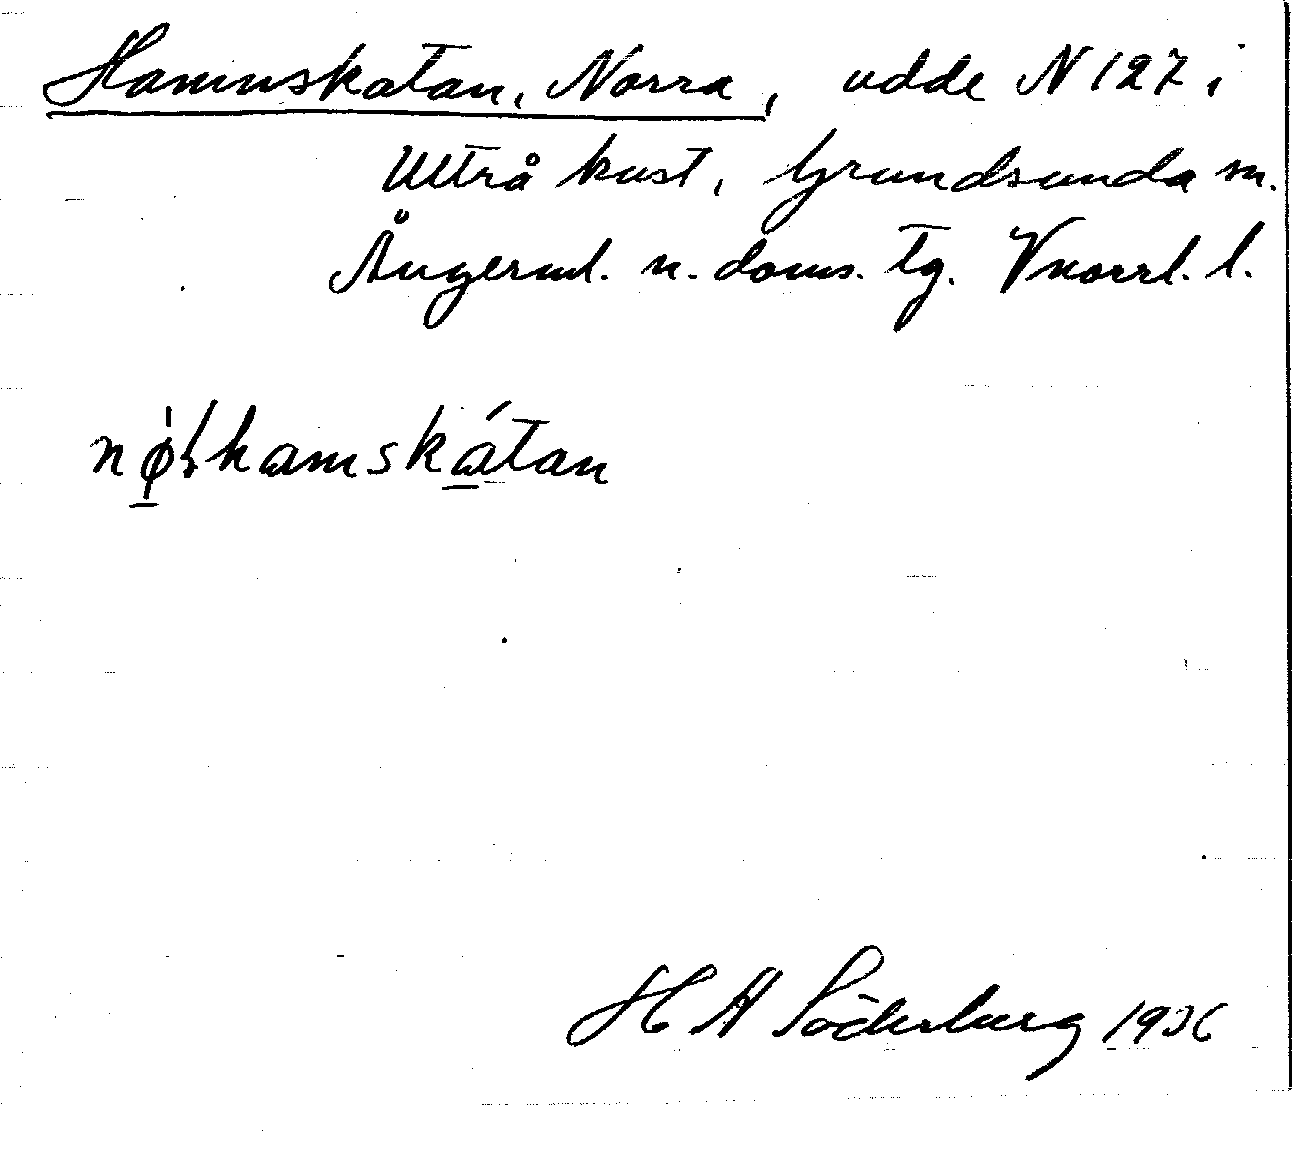 Hamnskatan, Norra, udde N 127 i
Ultrå kust, Grundsunda sn.
Ångerml. n. doms. tg. Vnorrl. l.
nø̀ṛhamskátan
H A Söderberg 1936